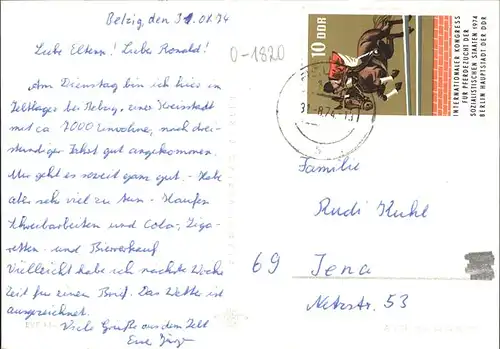 Belzig, den 31.08.74
Liebe Eltern! Liebe Ronald!
0-1820
Am Dienstag bin ich hier in
Zeltlager bei Belzig, einer Kleinstadt
mit ca. 7000 Einwohner, nach drei-
stündiger Fahrt gut angekommen.
Mir geht es soweit ganz gut. Habe
aber sehr viel zu tun. Haufen
Schreibarbeiten und Cola-, Ziga-
retten- und Bierverkauf
Vielleicht habe ich nächste Woche
Zeit für einen Brief. Das Wetter ist
ausgezeichnet.
Viele Grüße aus dem Zelt
Euer
10 DDR
INTERNATIONALER KONGRESS
FÜR PFERDEZUCHT DER
SOZIALISTISCHEN STAATEN 1974
BERLIN HAUPTSTADT DER DDR
31.-8.74
Familie
Rudi Kuhl
69 Jena
Netzstr. 53